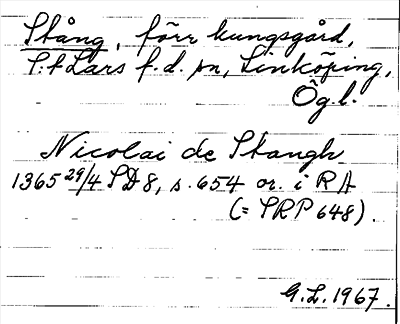 Stång, förr kungsgård,
S:t Lars f.d. sn, Linköping,
Ög.l.
Nicolai de Stangh
1365 29/4 SD 8, s. 654 or. i RA
(= SRP 648).
G.L. 1967.